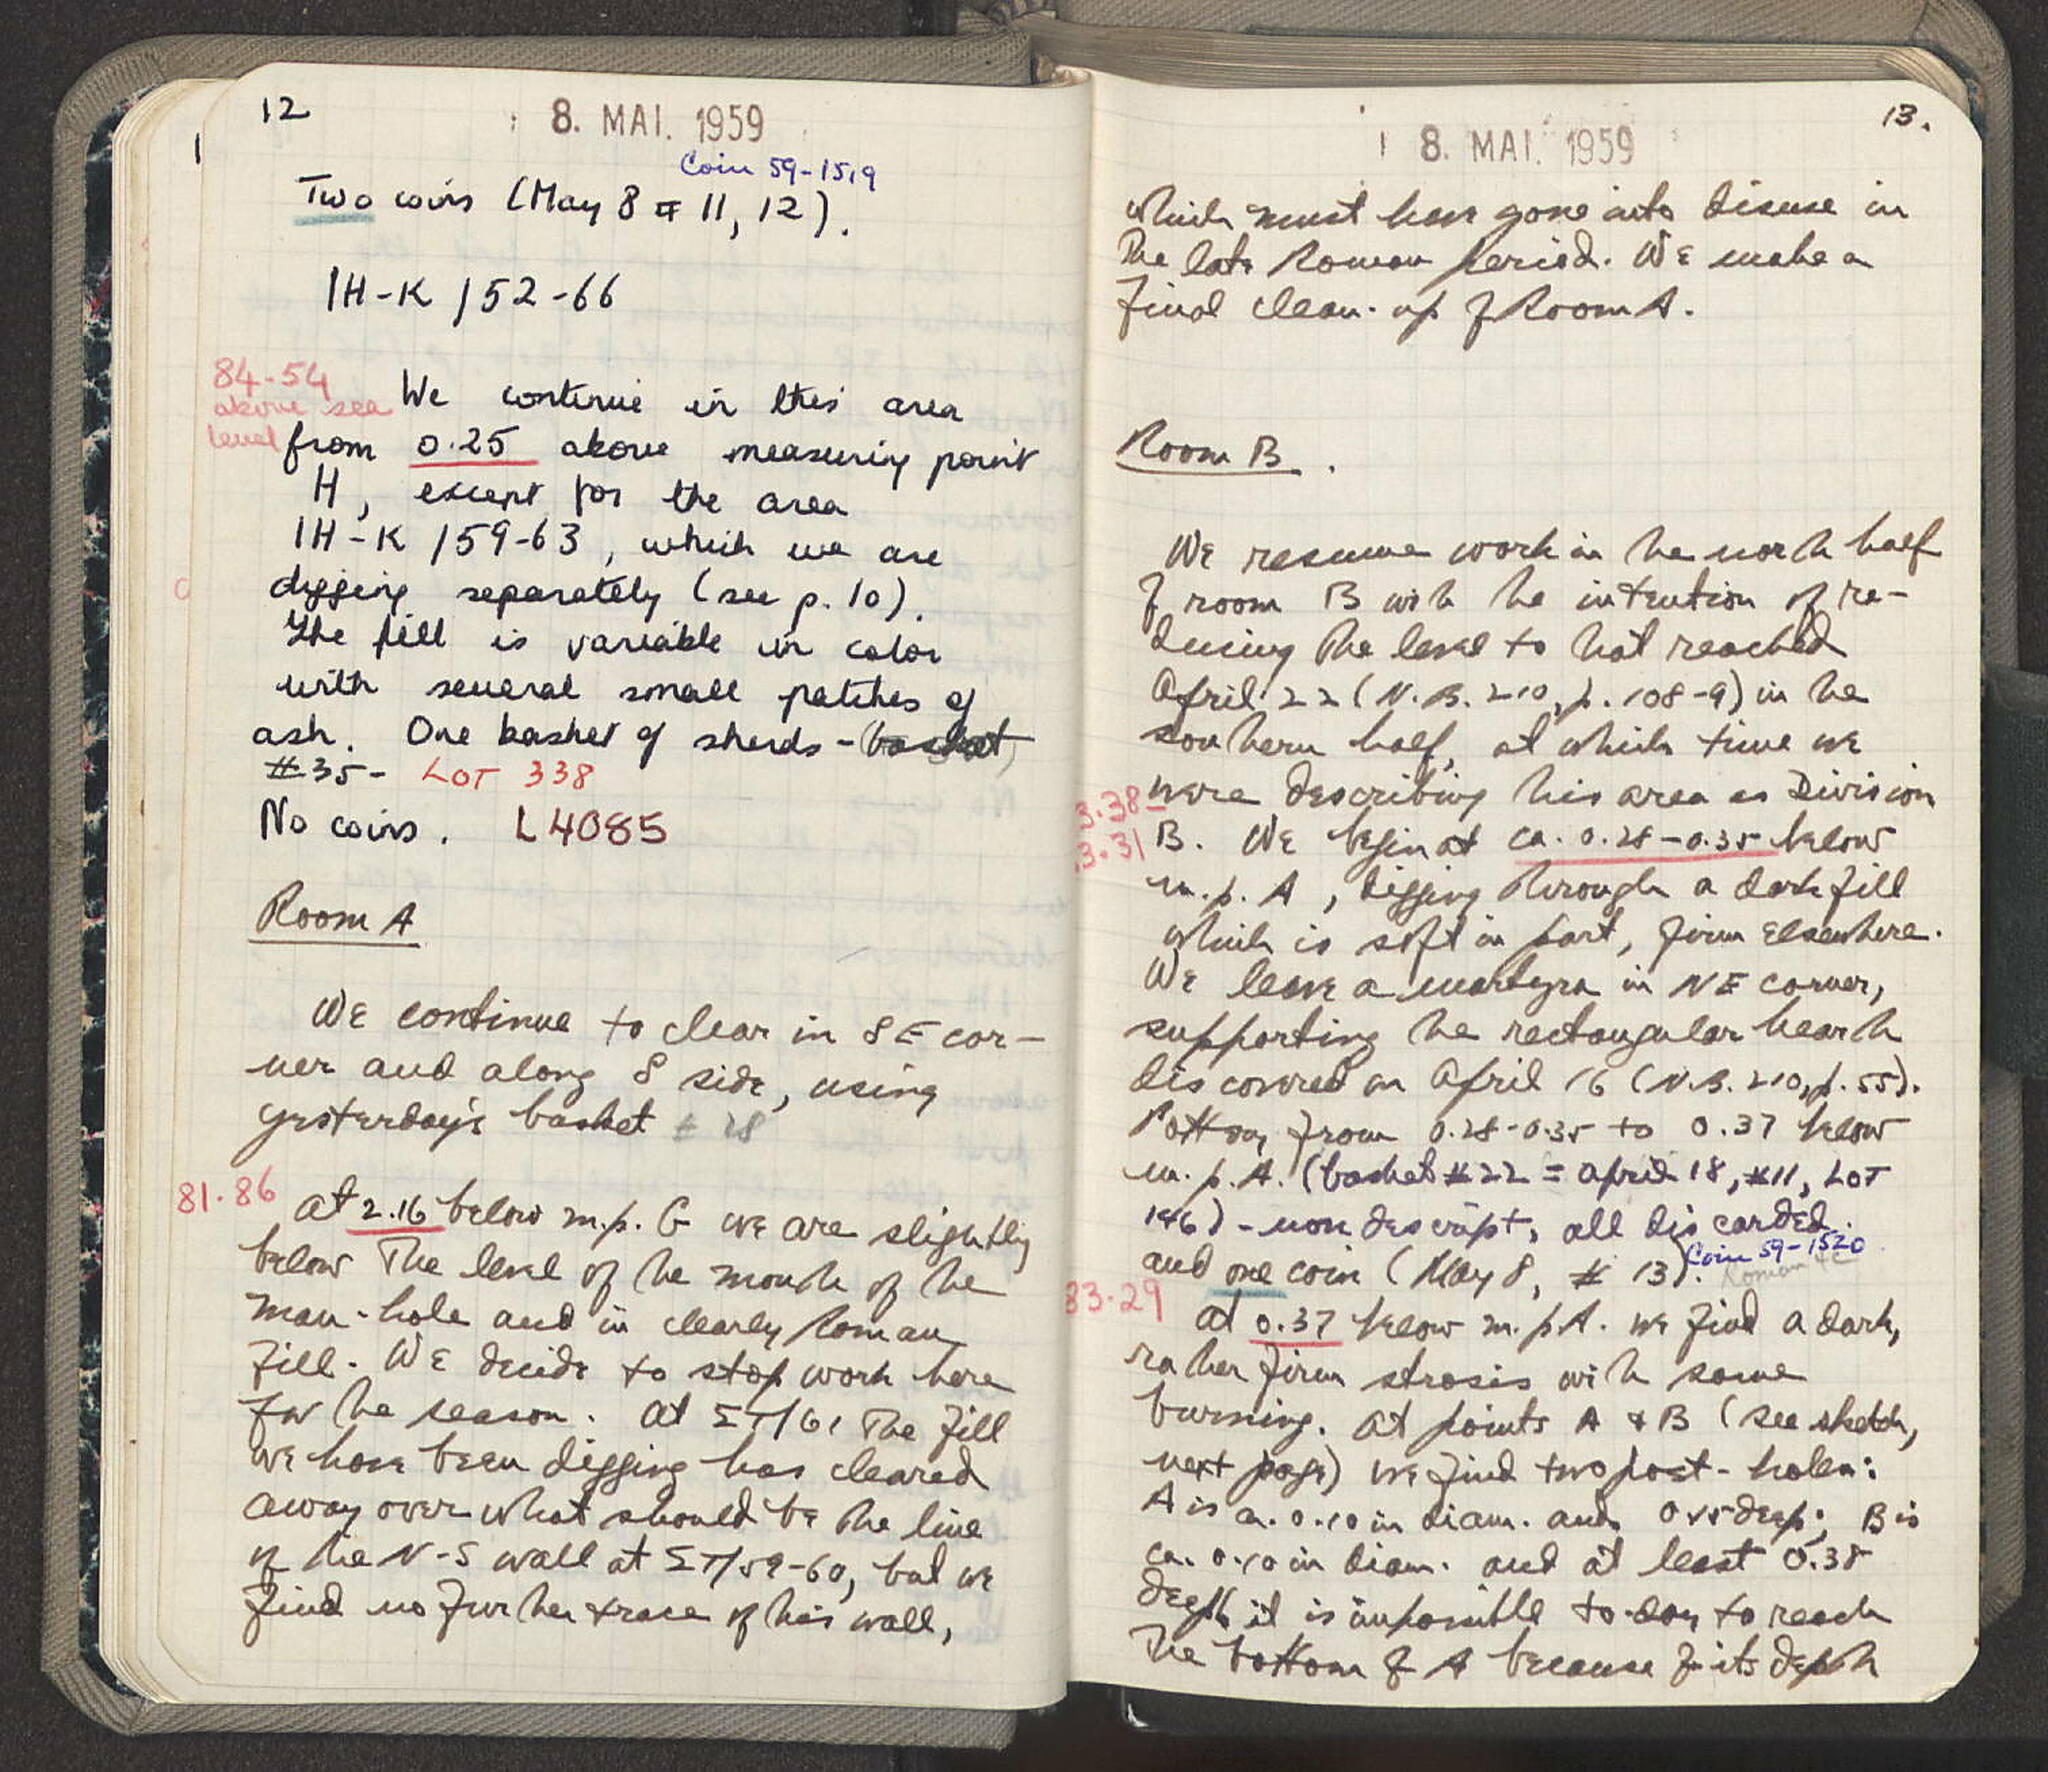 12
8. MAI. 1959
Coin 59-1519
Two coins (May 8 # 11, 12).
IH-K /52-66
84.54
above sea
level
We continue in this area
from 0.25 above measuring point
H, except for the area
IH-K /59-63, which we are
digging separately (see p. 10).
The fill is variable in color
with several small patches of
ash. One basket of sherds - (basket)
#35 - LOT 338
No coins. L4085
Room A
We continue to clear in SE cor-
ner and along S side, using
yesterday's basket # 28
81.86
At 2.16 below m.p. G we are slightly
below the level of the mouth of the
man-hole and in clearly Roman
fill. We decide to stop work here
for the season. At ΣT/61 the fill
we have been digging has cleared
away over what should be the line
of the N-S wall at ΣT/59-60, but we
find no further trace of this wall,
13.
8. MAI. 1959
which must have gone into disuse in
the late Roman period. We make a
final clean-up of Room A.
Room B.
We resume work in the north half
of room B with the intention of re-
ducing the level to that reached
April 22 (N.B. 210, p. 108-9) in the
southern half, at which time we
were describing this area as Division
3.38-
3.31
B. We begin at ca. 0.28-0.35 below
m.p. A, digging through a dark fill
which is soft in part, firm elsewhere.
We leave a martyra in NE corner,
supporting the rectangular hearth
discovered on April 16 (N.B. 210, p. 55).
Pottery from 0.28-0.35 to 0.37 below
m.p. A. (basket #22 = April 18, #11, LOT
146) - nondescript, all discarded.
and one coin (May 8, # 13). Coin 59-1520
Roman
83.29
At 0.37 below m.p. A. we find a dark,
rather firm strosis with some
burning. At points A & B (see sketch,
next page) we find two post-holes:
A is ca. 0.10 in diam. and deep; B is
ca. 0.10 in diam. and at least 0.38
deep; it is impossible to-day to reach
the bottom of A because of its depth